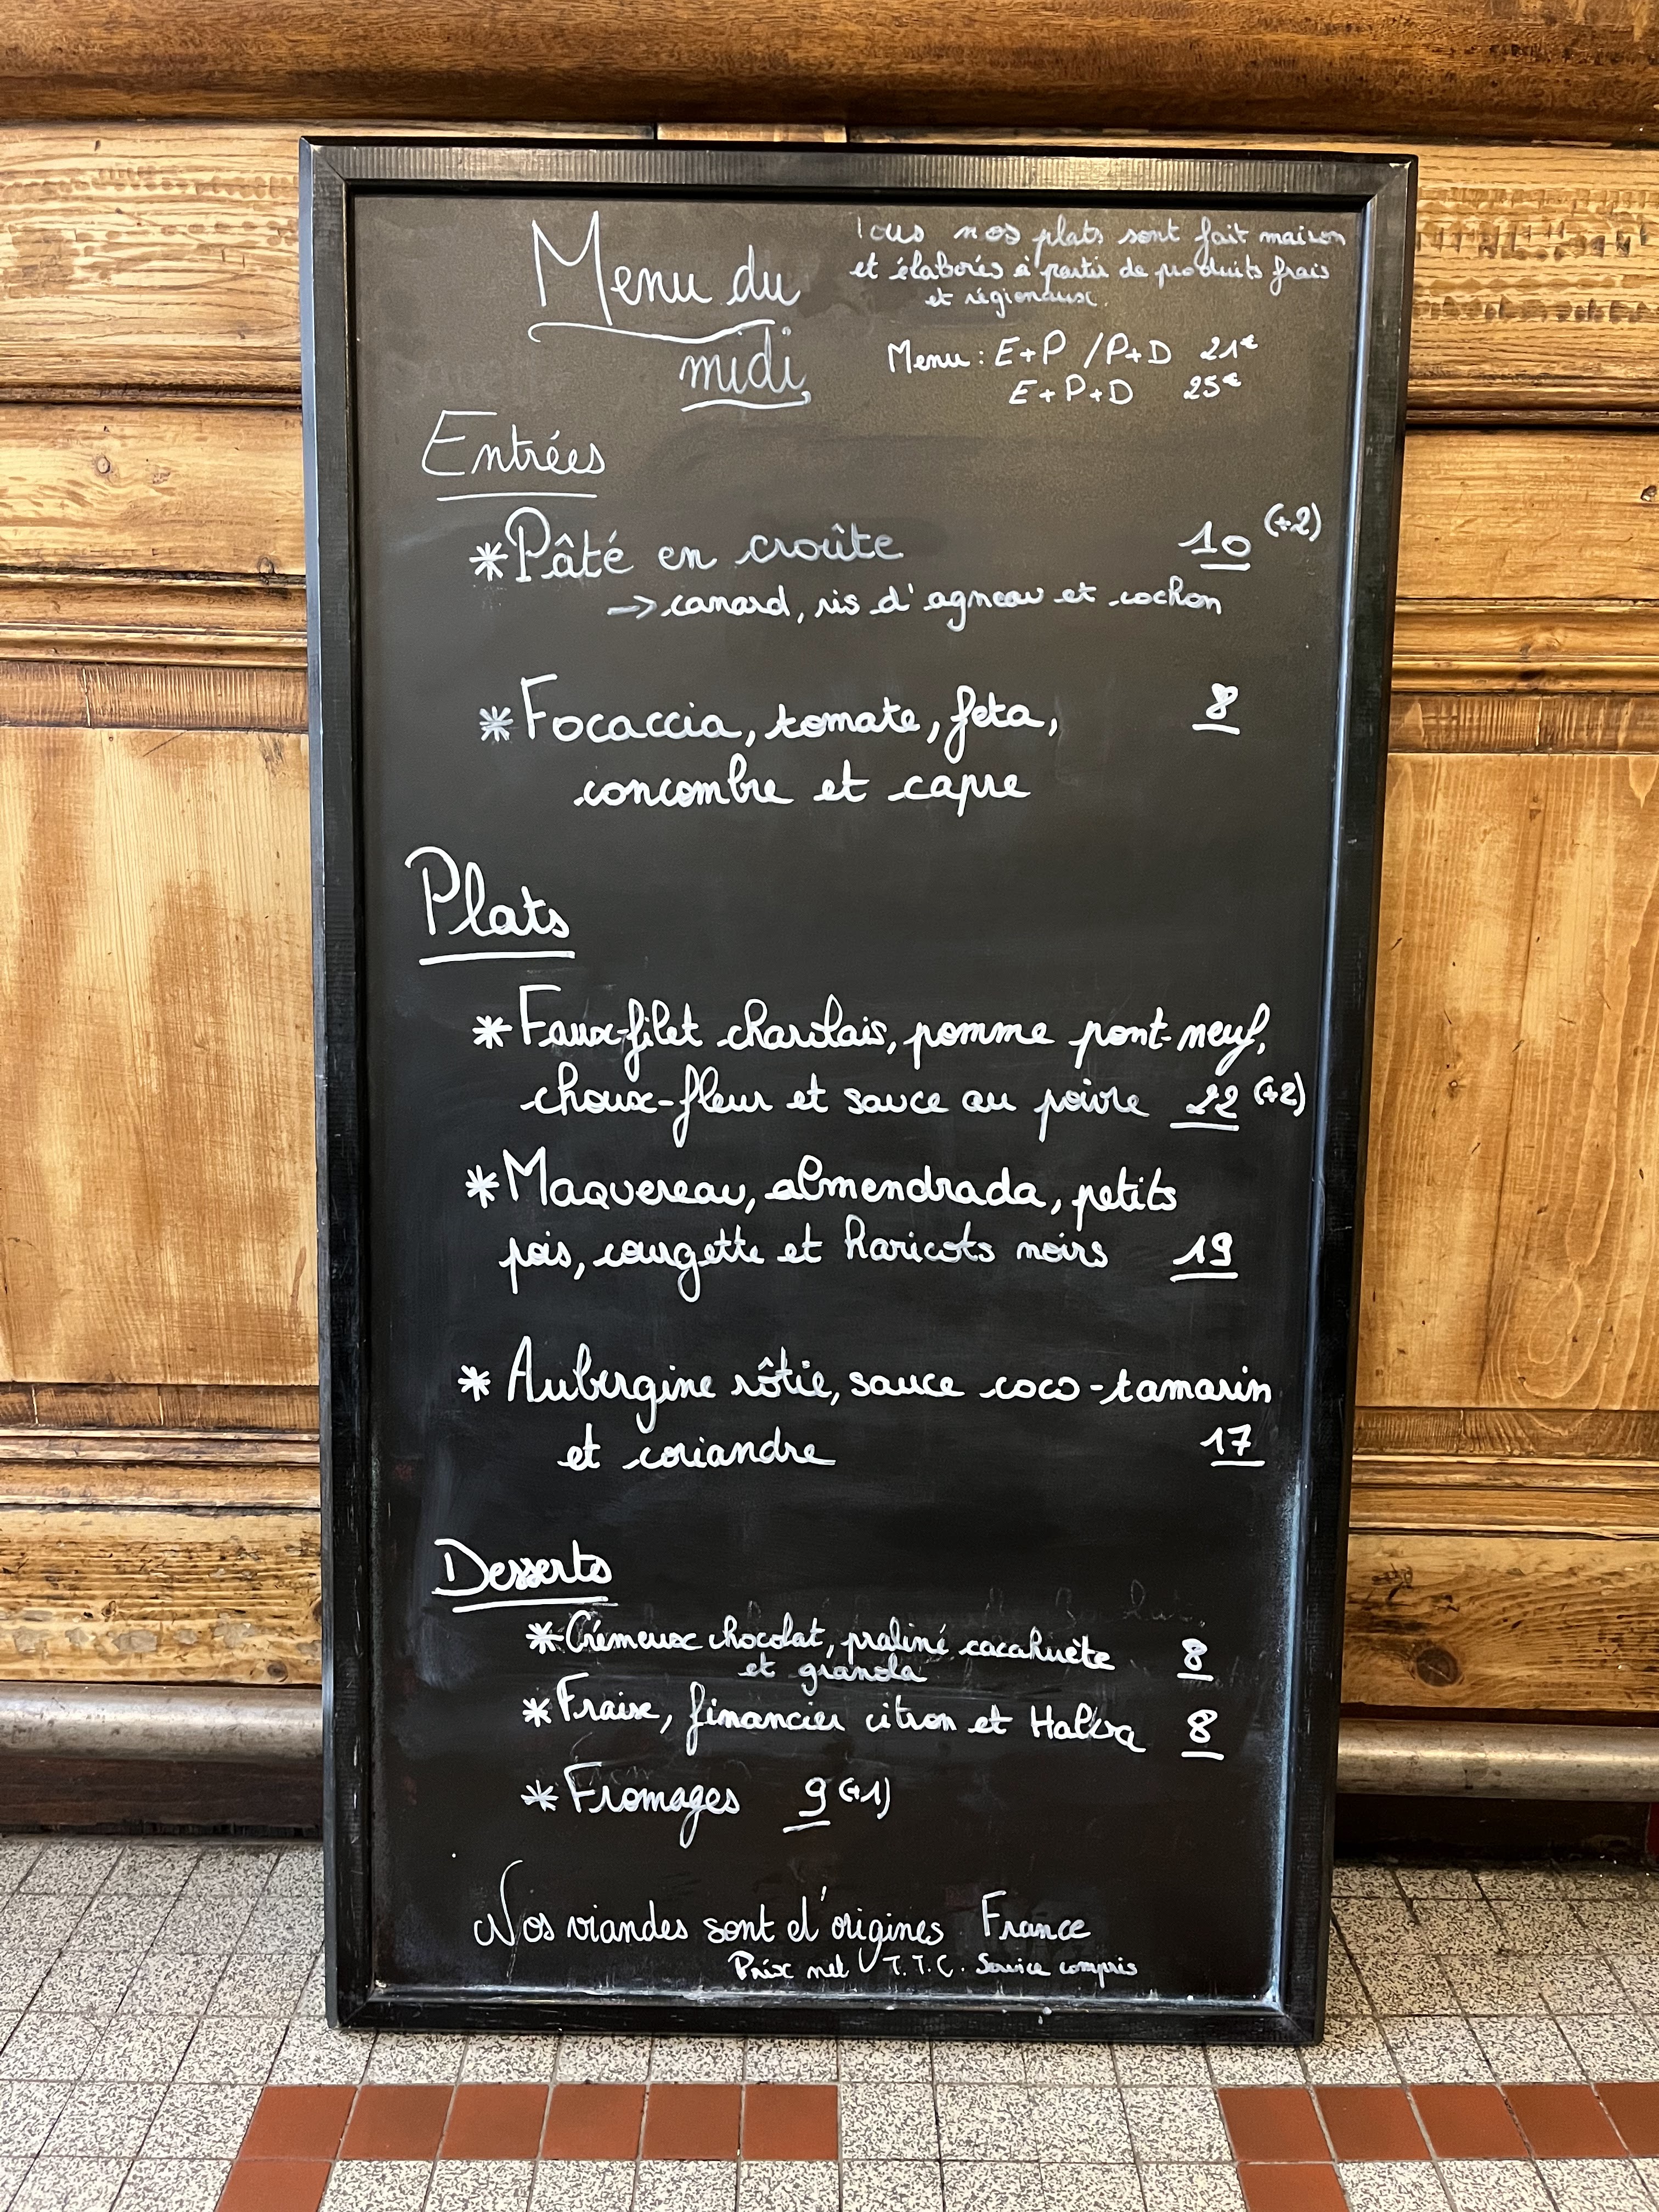 Menu du
midi
Tous nos plats sont fait maison
et élaborés à partir de produits frais
et régionaux.
Menu : E+P / P+D 21€
E+P+D 25€
Entrées
* Pâté en croûte 10 (+2)
-> canard, ris d'agneau et cochon
* Focaccia, tomate, feta, 8
concombre et capre
Plats
* Faux-filet charolais, pomme pont-neuf,
choux-fleur et sauce au poivre 22 (+2)
* Maquereau, almendrada, petits
pois, courgette et haricots noirs 19
* Aubergine rôtie, sauce coco-tamarin
et coriandre 17
Desserts
* Crémeux chocolat, praliné cacahuète 8
et granola
* Fraise, financier citron et Halva 8
* Fromages 9 (+1)
Nos viandes sont d'origines France
Prix net T.T.C. Service compris